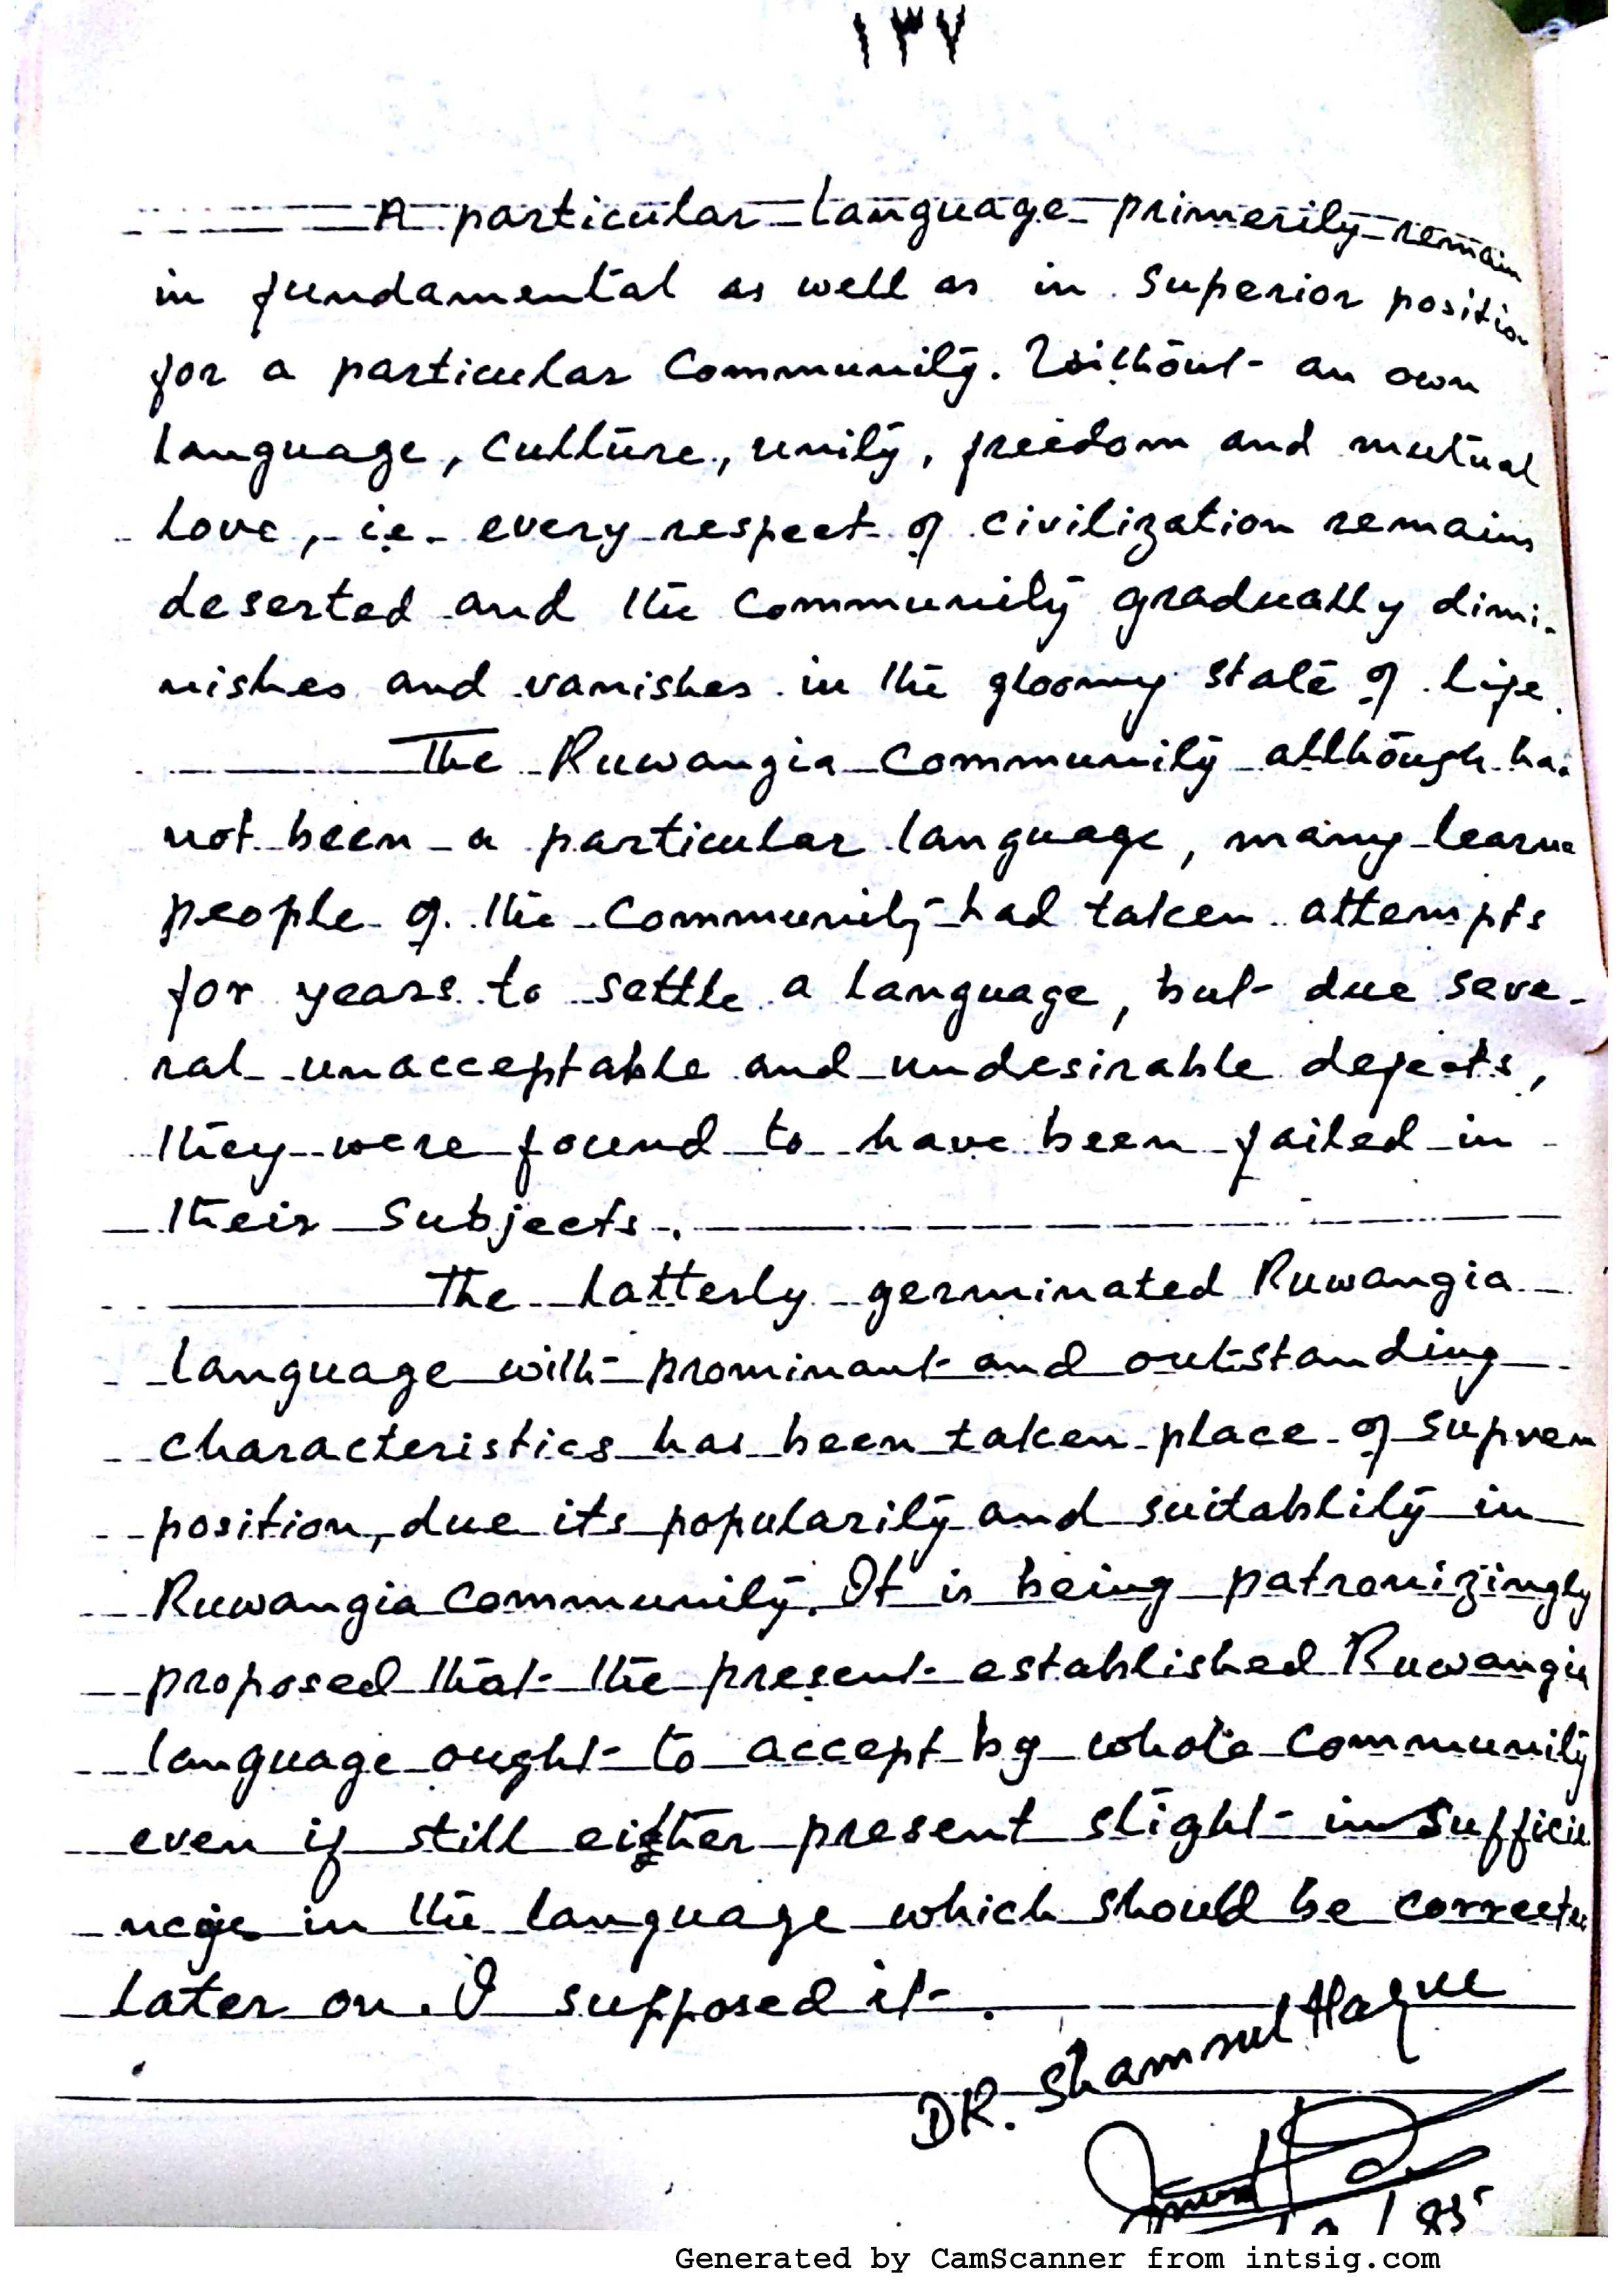 ١٣٧
A particular language primerily remain
in fundamental as well as in superior position
for a particular community. Without an own
language, culture, unity, freedom and mutual
love, i.e. every respect of civilization remains
deserted and the community gradually dimi-
nishes and vanishes in the gloomy state of life.
The Ruwangia community although has
not been a particular language, many learne
people of the community had taken attempts
for years to settle a language, but due seve-
ral unacceptable and undesirable defects,
they were found to have been failed in
their subjects.
The latterly germinated Ruwangia
language with prominant and outstanding
characteristics has been taken place of suprem
position, due its popularity and suitablity in
Ruwangia community. It is being patronizingly
proposed that the present established Ruwangia
language ought to accept by whole community
even if still either present slight insufficie
in the language which should be corrected
later on. I supposed it.
DR. Shamsul Haque
85
Generated by CamScanner from intsig.com